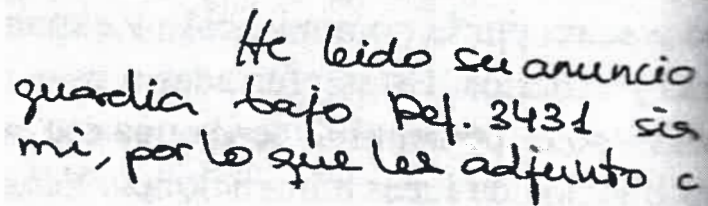 He leido su anuncio
guardia bajo Ref. 3431
mi, por lo que les adjunto c